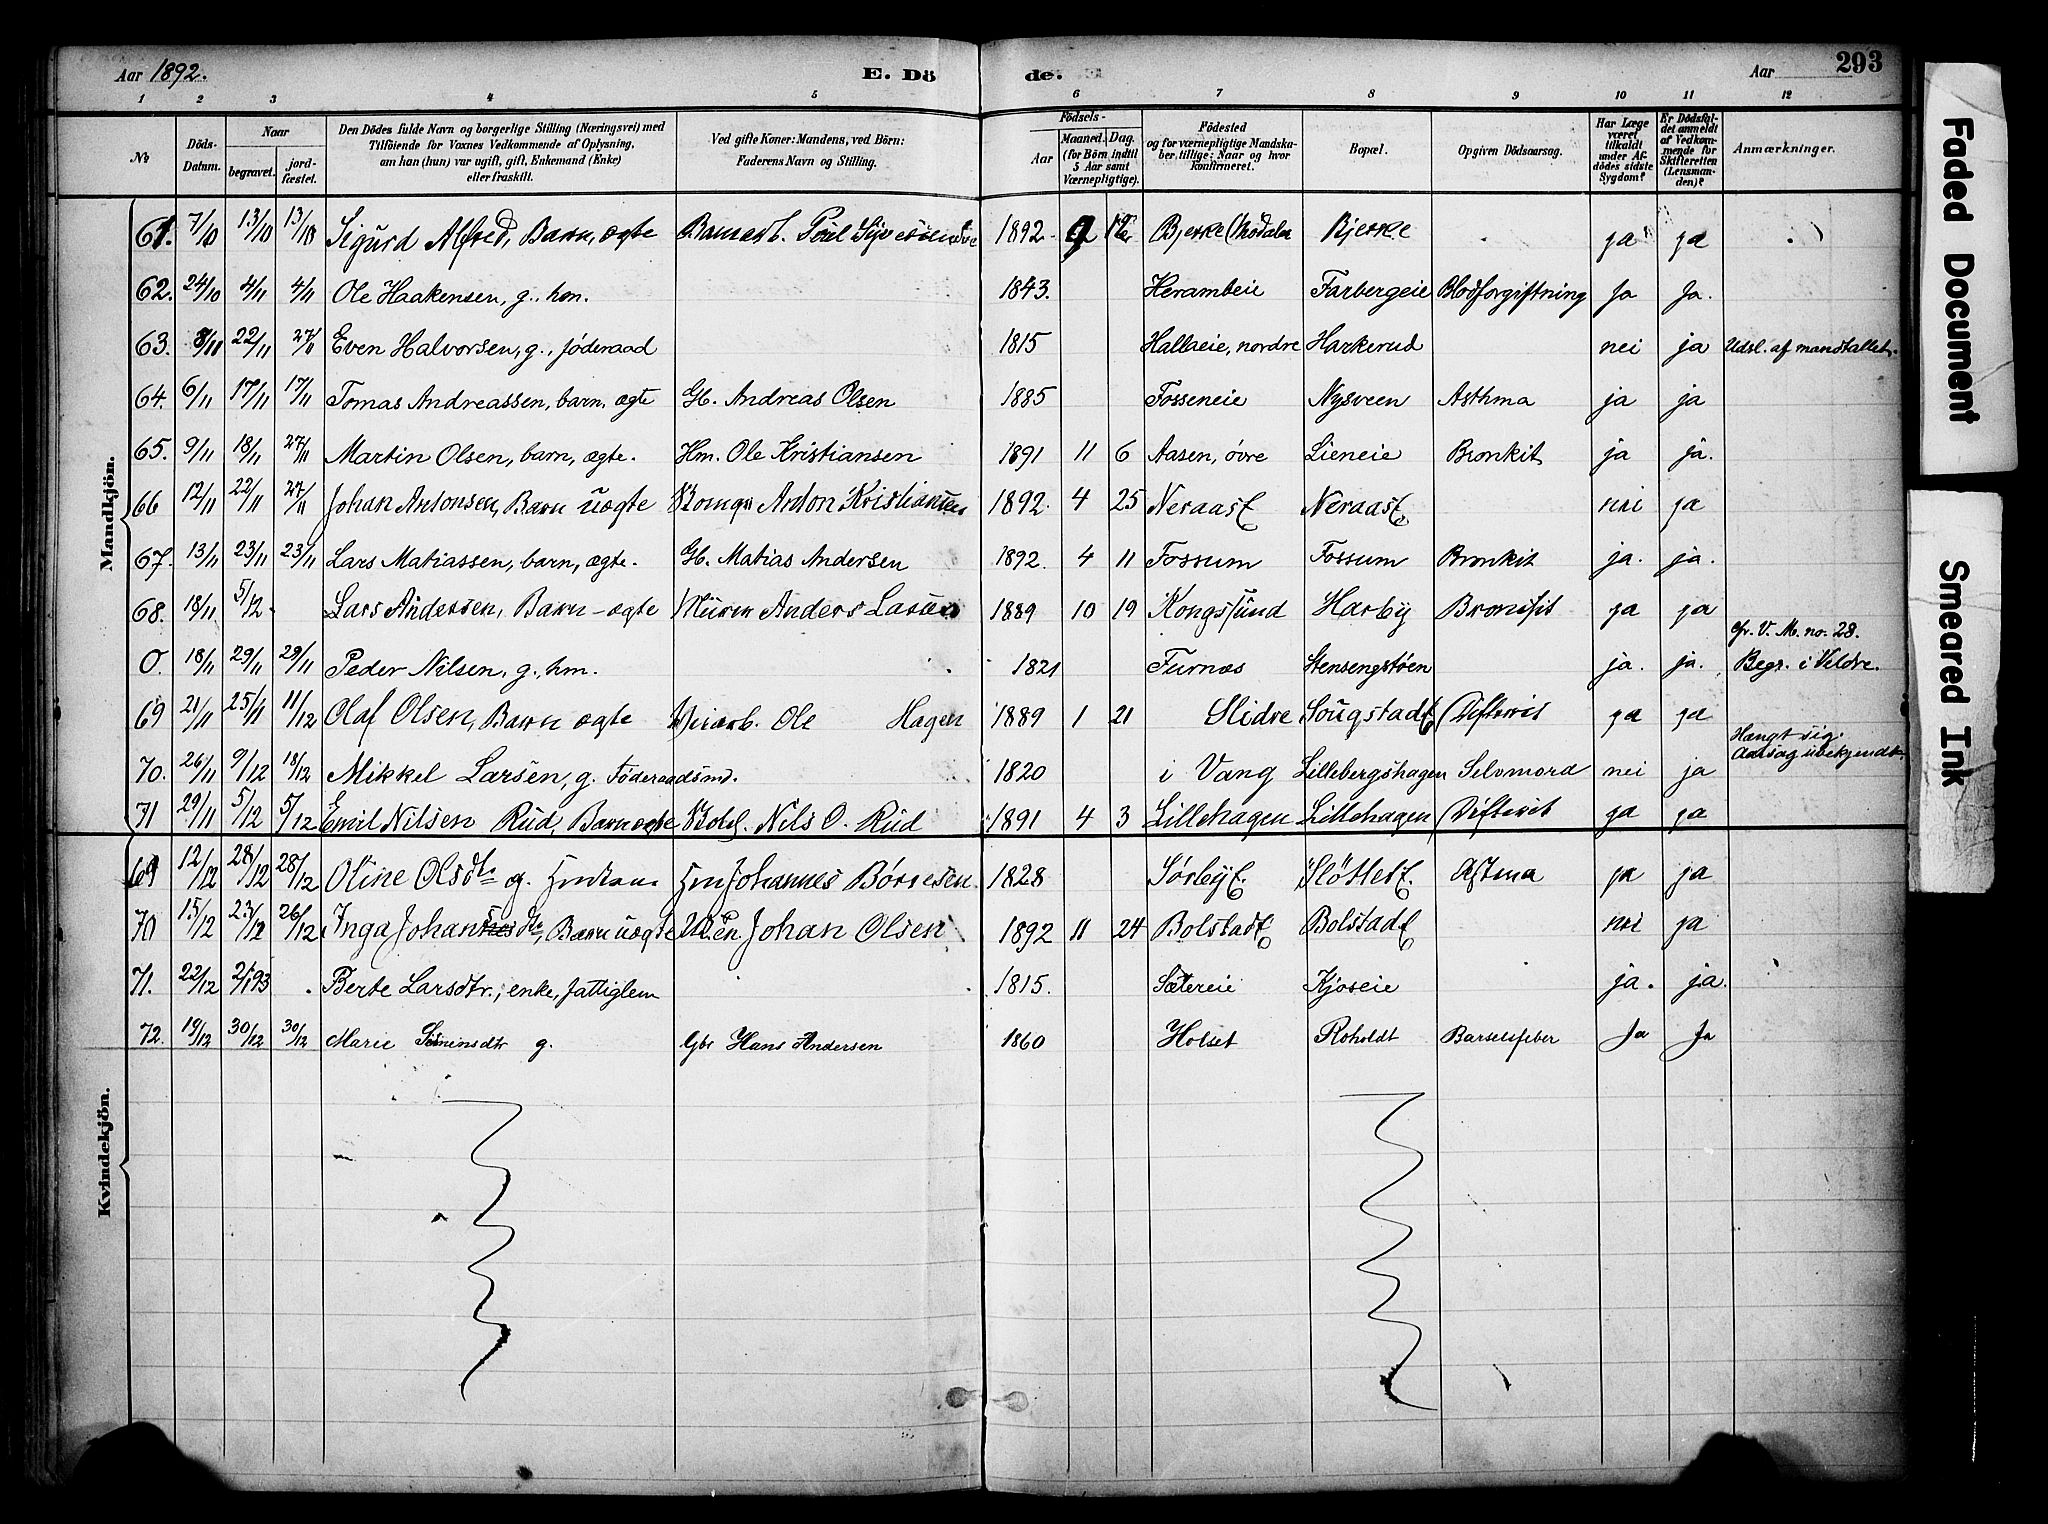 Aar 1892. E. Dö de. Aar 293
1 2 3 4 5 6 7 8 9 10 11 12
No
Döds-Datum.
Naar
begravet.
jord-fæstet.
Den Dödes fulde Navn og borgerlige Stilling (Næringsvei) med
Tilföiende for Voxnes Vedkommende af Oplysning,
om han (hun) var ugift, gift, Enkemand (Enke)
eller fraskilt.
Ved gifte Koner: Mandens, ved Börn:
Faderens Navn og Stilling.
Födsels-
Aar
Maaned.
Dag.
(for Börn indtil
5 Aar samt
Værnepligtige).
Födested
og for værnepligtige Mandska-
ber tillige: Naar og hvor
konfirmeret.
Bopæl.
Opgiven Dödsaarsag.
Har Læge
været
tilkaldt
under Af-
dödes sidste
Sygdom?
Er Dödsfal-
det anmeldt
af Vedkom-
mende for
Skifteretten
(Lensman-
den)?
Anmærkninger.
Mandkjön.
61. 7/10 13/10 13/10 Sigurd Alfred, Barn, ægte 1892 9 Bjerke Bjerke ja ja
62. 24/10 4/11 4/11 Ole Haakensen, g., hm. 1843. Herambeie Farbergeie Blodforgiftning Ja Ja.
63. 8/11 22/11 27/11 Even Halvorsen, g., föderaad 1815 Hallaeie, nordre Harkerud nei ja Udsl. af mandtallet.
64. 6/11 17/11 17/11 Tomas Andreassen, barn, ægte G. Andreas Olsen 1885 Fosseneie Nysveen Asthma ja ja
65. 9/11 18/11 27/11 Martin Olsen, barn, ægte. Hm. Ole Kristiansen 1891 11 6 Aasen, övre Lieneie Bronkit ja ja.
66 12/11 22/11 27/11 Johan Antonsen, Barn uægte Anton Kristiansen 1892. 4 25 Neraas Neraas nei ja
67. 13/11 23/11 23/11 Lars Matiassen, barn, ægte. G. Matias Andersen 1892. 4 11 Fossum Fossum Bronkit ja. ja.
68. 18/11 5/12 Lars Andersen, Barn - ægte Murer Anders Larsen 1889 10 19 Kongslund Harby Bronkit ja ja
0. 18/11 29/11 29/11 Peder Nilsen, g., hm. 1821 Furnæs Stensengstöen ja. ja. cfr. V. M. no. 28.
Begr. i Veldre.
69 21/11 25/11 11/12 Olaf Olsen, Barn ægte Ole Hagen 1889 1 21 Slidre Difterit ja ja
70. 26/11 9/12 18/12 Mikkel Larsen, g. Föderaadsmd. 1820 i Vang Lillebergshagen Selvmord nei ja Hængt sig.
Aarsag ubekjendt.
71 29/11 5/12 5/12 Emil Nilsen Rud, Barn ægte Nils O. Rud 1891 4 3 Lillehagen Lillehagen Difterit ja ja
Kvindekjön.
69 12/12 28/12 28/12 Oline Olsdtr g. Johannes Börresen 1828 Sörby Slötter Astma ja ja
70 15/12 23/12 26/12 Inga Johansdtr, Barn uægte Johan Olsen 1892 11 24 Bolstad Bolstad nei ja
71. 22/12 2/1 93 Berte Larsdtr., enke, fattiglem 1815. Sætereie Kjoseie ja. ja.
72. 19/12 30/12 30/12 Marie Simensdtr g. Gbr Hans Andersen 1860 Holset Roholdt Barselfeber Ja Ja
Faded Document
Smeared Ink